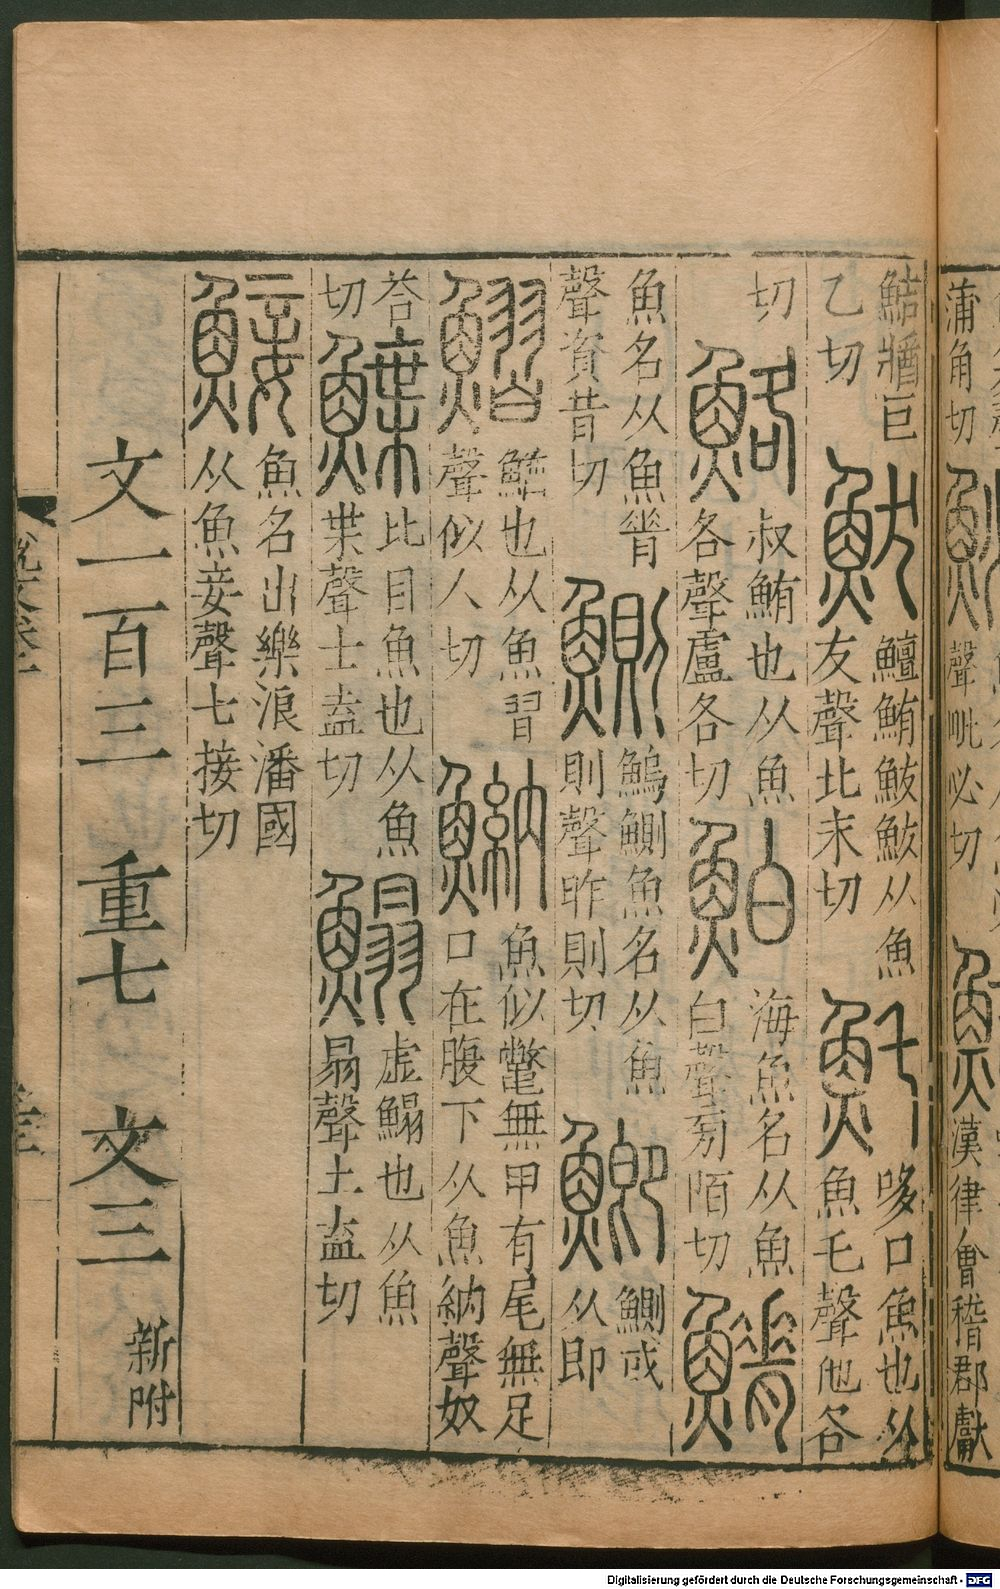 蒲角切
聲毗必切
漢律會稽郡獻
鮚牆巨
乙切
鮁
鱣鮪鮁鮁从魚
友聲北末切
魠
哆口魚也从
魚乇聲他各
切
鮥
叔鮪也从魚
各聲盧各切
鮊
海魚名从魚
白聲㫄陌切
魚名从魚脊
聲資昔切
鰂
鰞鰂魚名从魚
則聲昨則切
鯽
鰂或
从即
鰼
鰌也从魚習
聲似入切
魚似鼈無甲有尾無足
口在腹下从魚納聲奴
荅
切
鰈
比目魚也从魚
枼聲土盍切
鰨
虛鰨也从魚
𦐇聲土盍切
鯜
魚名出樂浪潘國
从魚妾聲七接切
文一百三 重七 文三 新附
Digitalisierung gefördert durch die Deutsche Forschungsgemeinschaft - DFG